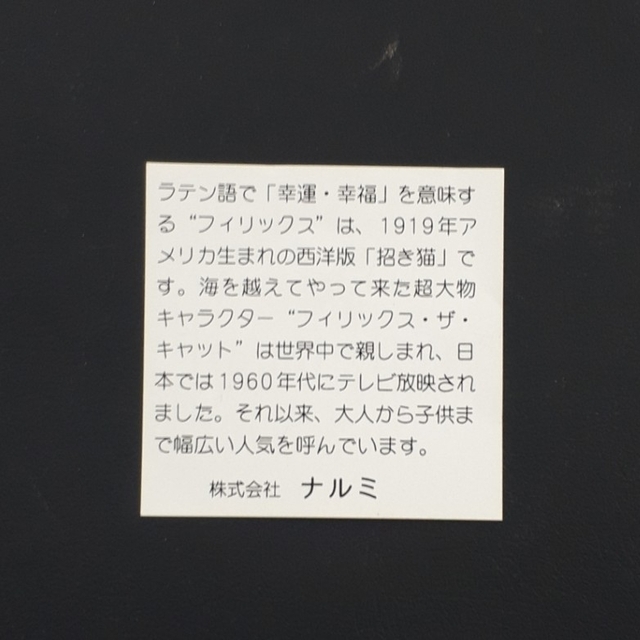 ラテン語で「幸運・幸福」を意味す
る“フィリックス”は、1919年ア
メリカ生まれの西洋版「招き猫」で
す。海を越えてやって来た超大物
キャラクター“フィリックス・ザ・
キャット”は世界中で親しまれ、日
本では1960年代にテレビ放映され
ました。それ以来、大人から子供ま
で幅広い人気を呼んでいます。
株式会社 ナルミ